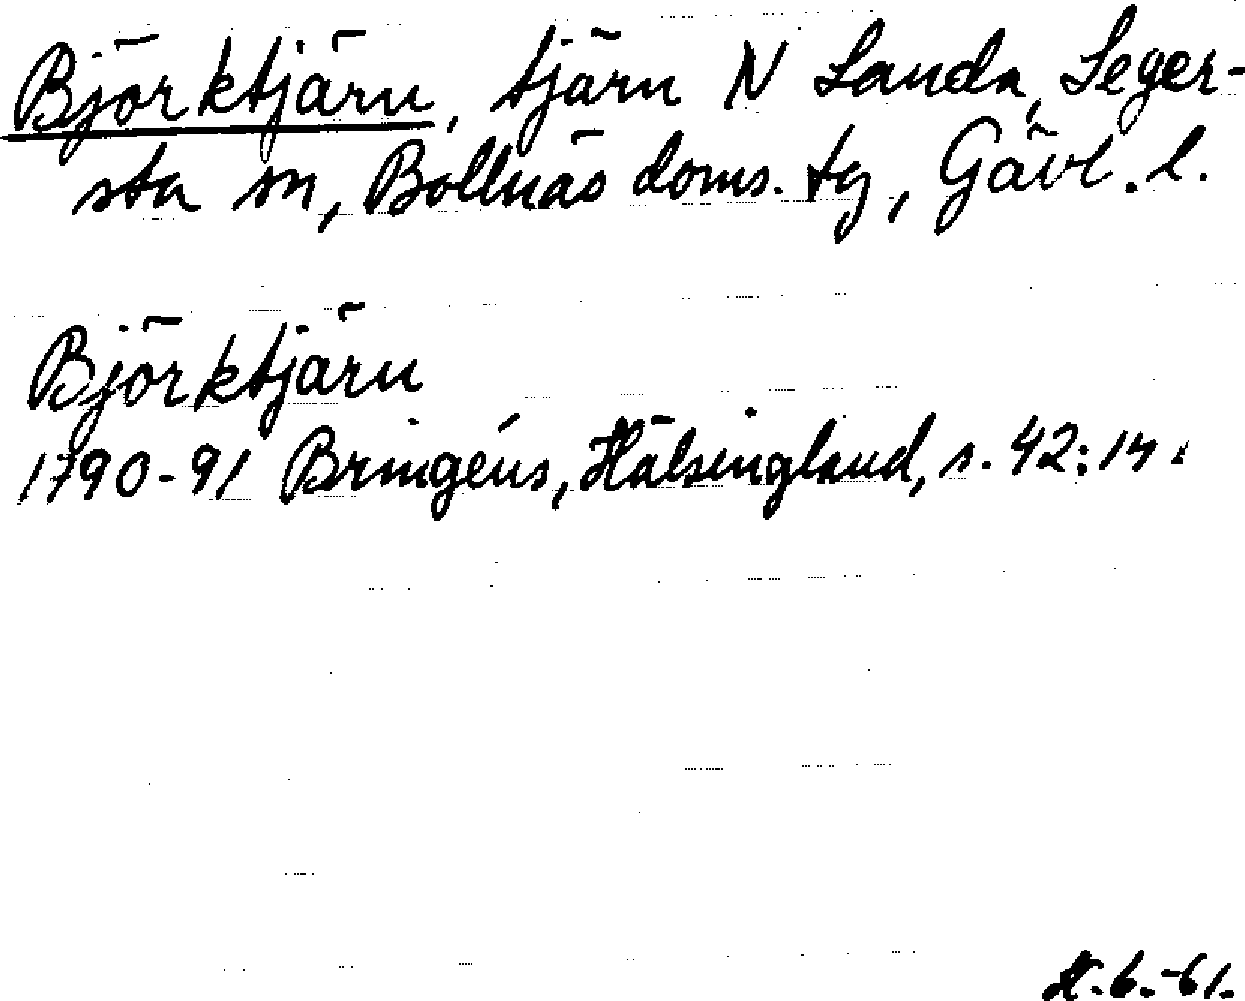 Björktjärn, tjärn N Landa, Seger-
sta sn, Bollnäs doms. tg, Gävl. l.
Björktjärn
1790-91 Bringéus, Hälsingland, s. 42:14.
6.-61.